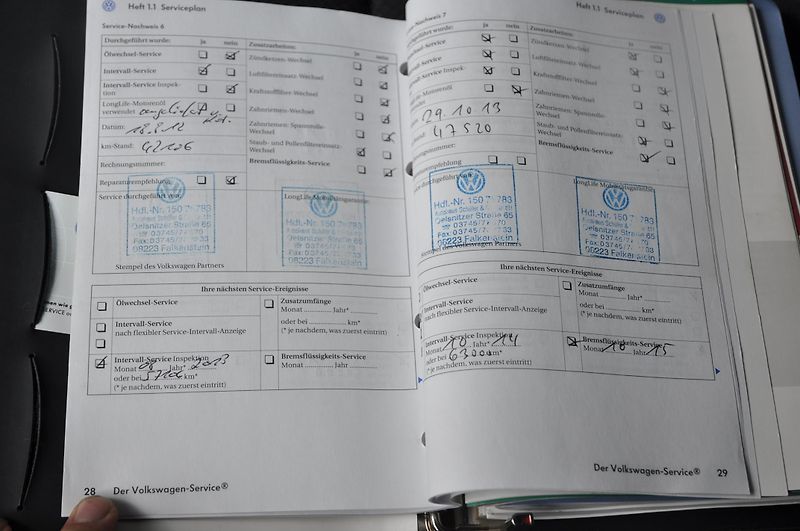 Heft 1.1 Serviceplan
Service-Nachweis 6
Durchgeführt wurde: ja nein
Ölwechsel-Service
Intervall-Service
Intervall-Service Inspek-
tion
LongLife-Motorenöl
verwendet
Datum: 18.8.12
km-Stand: 42106
Rechnungsnummer:
Reparaturempfehlung
Zusatzarbeiten: ja nein
Zündkerzen-Wechsel
Luftfiltereinsatz-Wechsel
Kraftstofffilter-Wechsel
Zahnriemen-Wechsel
Zahnriemen- Spannrolle-
Wechsel
Staub- und Pollenfiltereinsatz-
Wechsel
Bremsflüssigkeits-Service
Service durchgeführt von:
LongLife Mobilitätsgarantie
Hdl.-Nr. 150 783
Oelsnitzer Straße 65
08223 Falkenstein
Hdl.-Nr. 150 783
Oelsnitzer Straße 65
08223 Falkenstein
Stempel des Volkswagen Partners
Ihre nächsten Service-Ereignisse
Ölwechsel-Service
Intervall-Service
nach flexibler Service-Intervall-Anzeige
Intervall-Service Inspektion
Monat 08 Jahr* 2013
oder bei 57106 km*
(* je nachdem, was zuerst eintritt)
Zusatzumfänge
Monat ............ Jahr* ............
oder bei ............ km*
(* je nachdem, was zuerst eintritt)
Bremsflüssigkeits-Service
Monat ............ Jahr ............
28 Der Volkswagen-Service®
Heft 1.1 Serviceplan
Nachweis 7
wurde: ja nein
-Service
-Service
-Service Inspek-
-Motorenöl
29.10.13
47520
Zusatzarbeiten: ja nein
Zündkerzen-Wechsel
Luftfiltereinsatz-Wechsel
Kraftstofffilter-Wechsel
Zahnriemen-Wechsel
Zahnriemen- Spannrolle-
Wechsel
Staub- und Pollenfiltereinsatz-
Wechsel
Bremsflüssigkeits-Service
LongLife Mobilitätsgarantie
Hdl.-Nr. 150 783
Oelsnitzer Straße 65
08223 Falkenstein
Hdl.-Nr. 150 783
Oelsnitzer Straße 65
08223 Falkenstein
Stempel des Volkswagen Partners
Ihre nächsten Service-Ereignisse
Ölwechsel-Service
Intervall-Service
nach flexibler Service-Intervall-Anzeige
Intervall-Service Inspektion
Monat 10 Jahr* 14
oder bei 63000 km*
(* je nachdem, was zuerst eintritt)
Zusatzumfänge
Monat ............ Jahr* ............
oder bei ............ km*
(* je nachdem, was zuerst eintritt)
Bremsflüssigkeits-Service
Monat 10 Jahr 15
Der Volkswagen-Service® 29